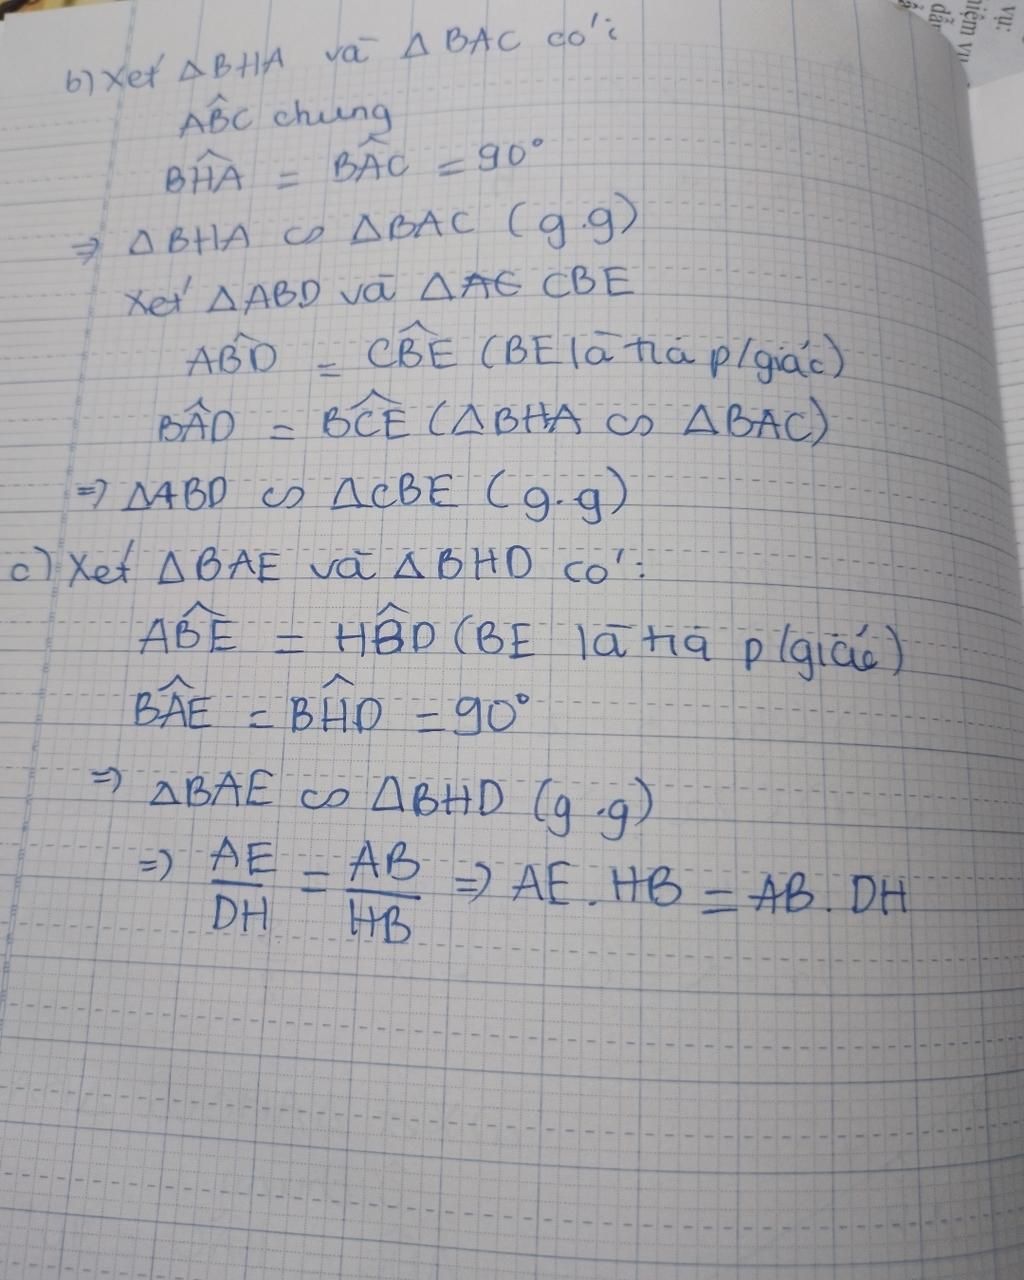 b) Xét △BHA và △BAC có:
AB̂C chung
BĤA = BÂC = 90°
⇒ △BHA ∽ △BAC (g.g)
Xét △ABD và △AE CBE
AB̂D = CB̂E (BE là tia p/giác)
BÂD = BĈE (△BHA ∽ △BAC)
⇒ △ABD ∽ △CBE (g.g)
c) Xét △BAE và △BHD có:
AB̂E = HB̂D (BE là tia p/giác)
BÂE = BĤD = 90°
⇒ △BAE ∽ △BHD (g.g)
⇒ AE/DH = AB/HB ⇒ AE. HB = AB. DH
vụ:
iệm vụ